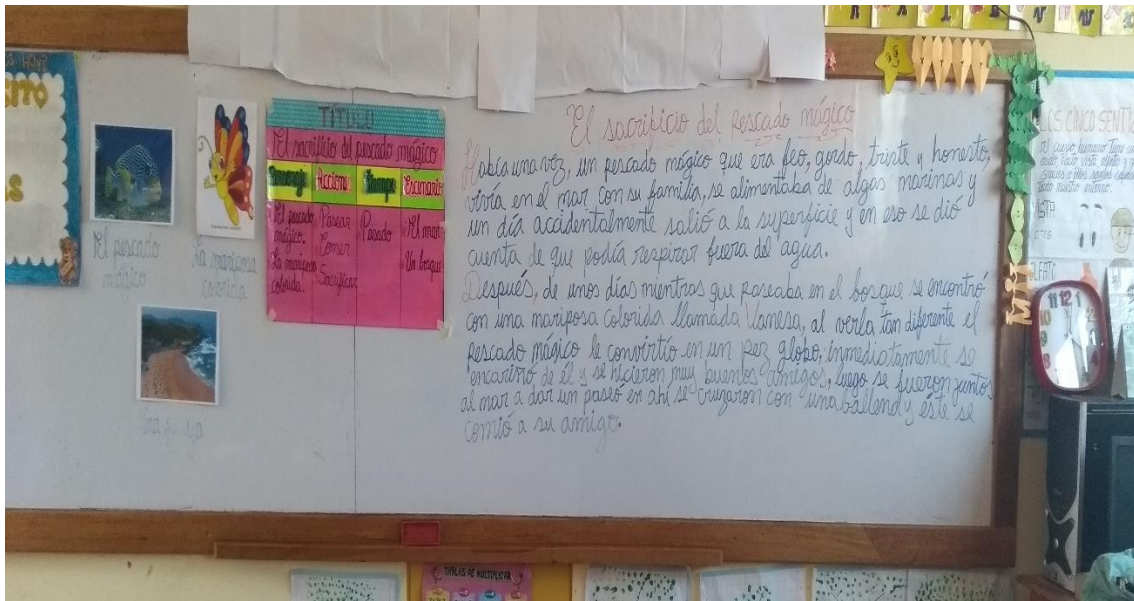 El pescado
mágico
La mariposa
colorida
TÍTULO
El sacrificio del pescado mágico
Accione
Tiempo
Escenario
El pescado
mágico.
La mariposa
colorida.
Pasear
Comer
Sacrificar
Pasado
El mar
Un bosque
El sacrificio del pescado mágico
Había una vez, un pescado mágico que era feo, gordo, triste y honesto,
vivía en el mar con su familia, se alimentaba de algas marinas y
un día accidentalmente salió a la superficie y en eso se dió
cuenta de que podía respirar fuera del agua.
Después, de unos días mientras que paseaba en el bosque se encontró
con una mariposa colorida llamada Vanesa, al verla tan diferente el
pescado mágico le convirtío en un pez globo, inmediatamente se
encariñó de él y se hicieron muy buenos amigos, luego se fueron juntos
al mar a dar un paseo en ahí se cruzaron con una ballena y éste se
comió a su amigo.
LOS CINCO SENTI
TABLAS DE MULTIPLICAR